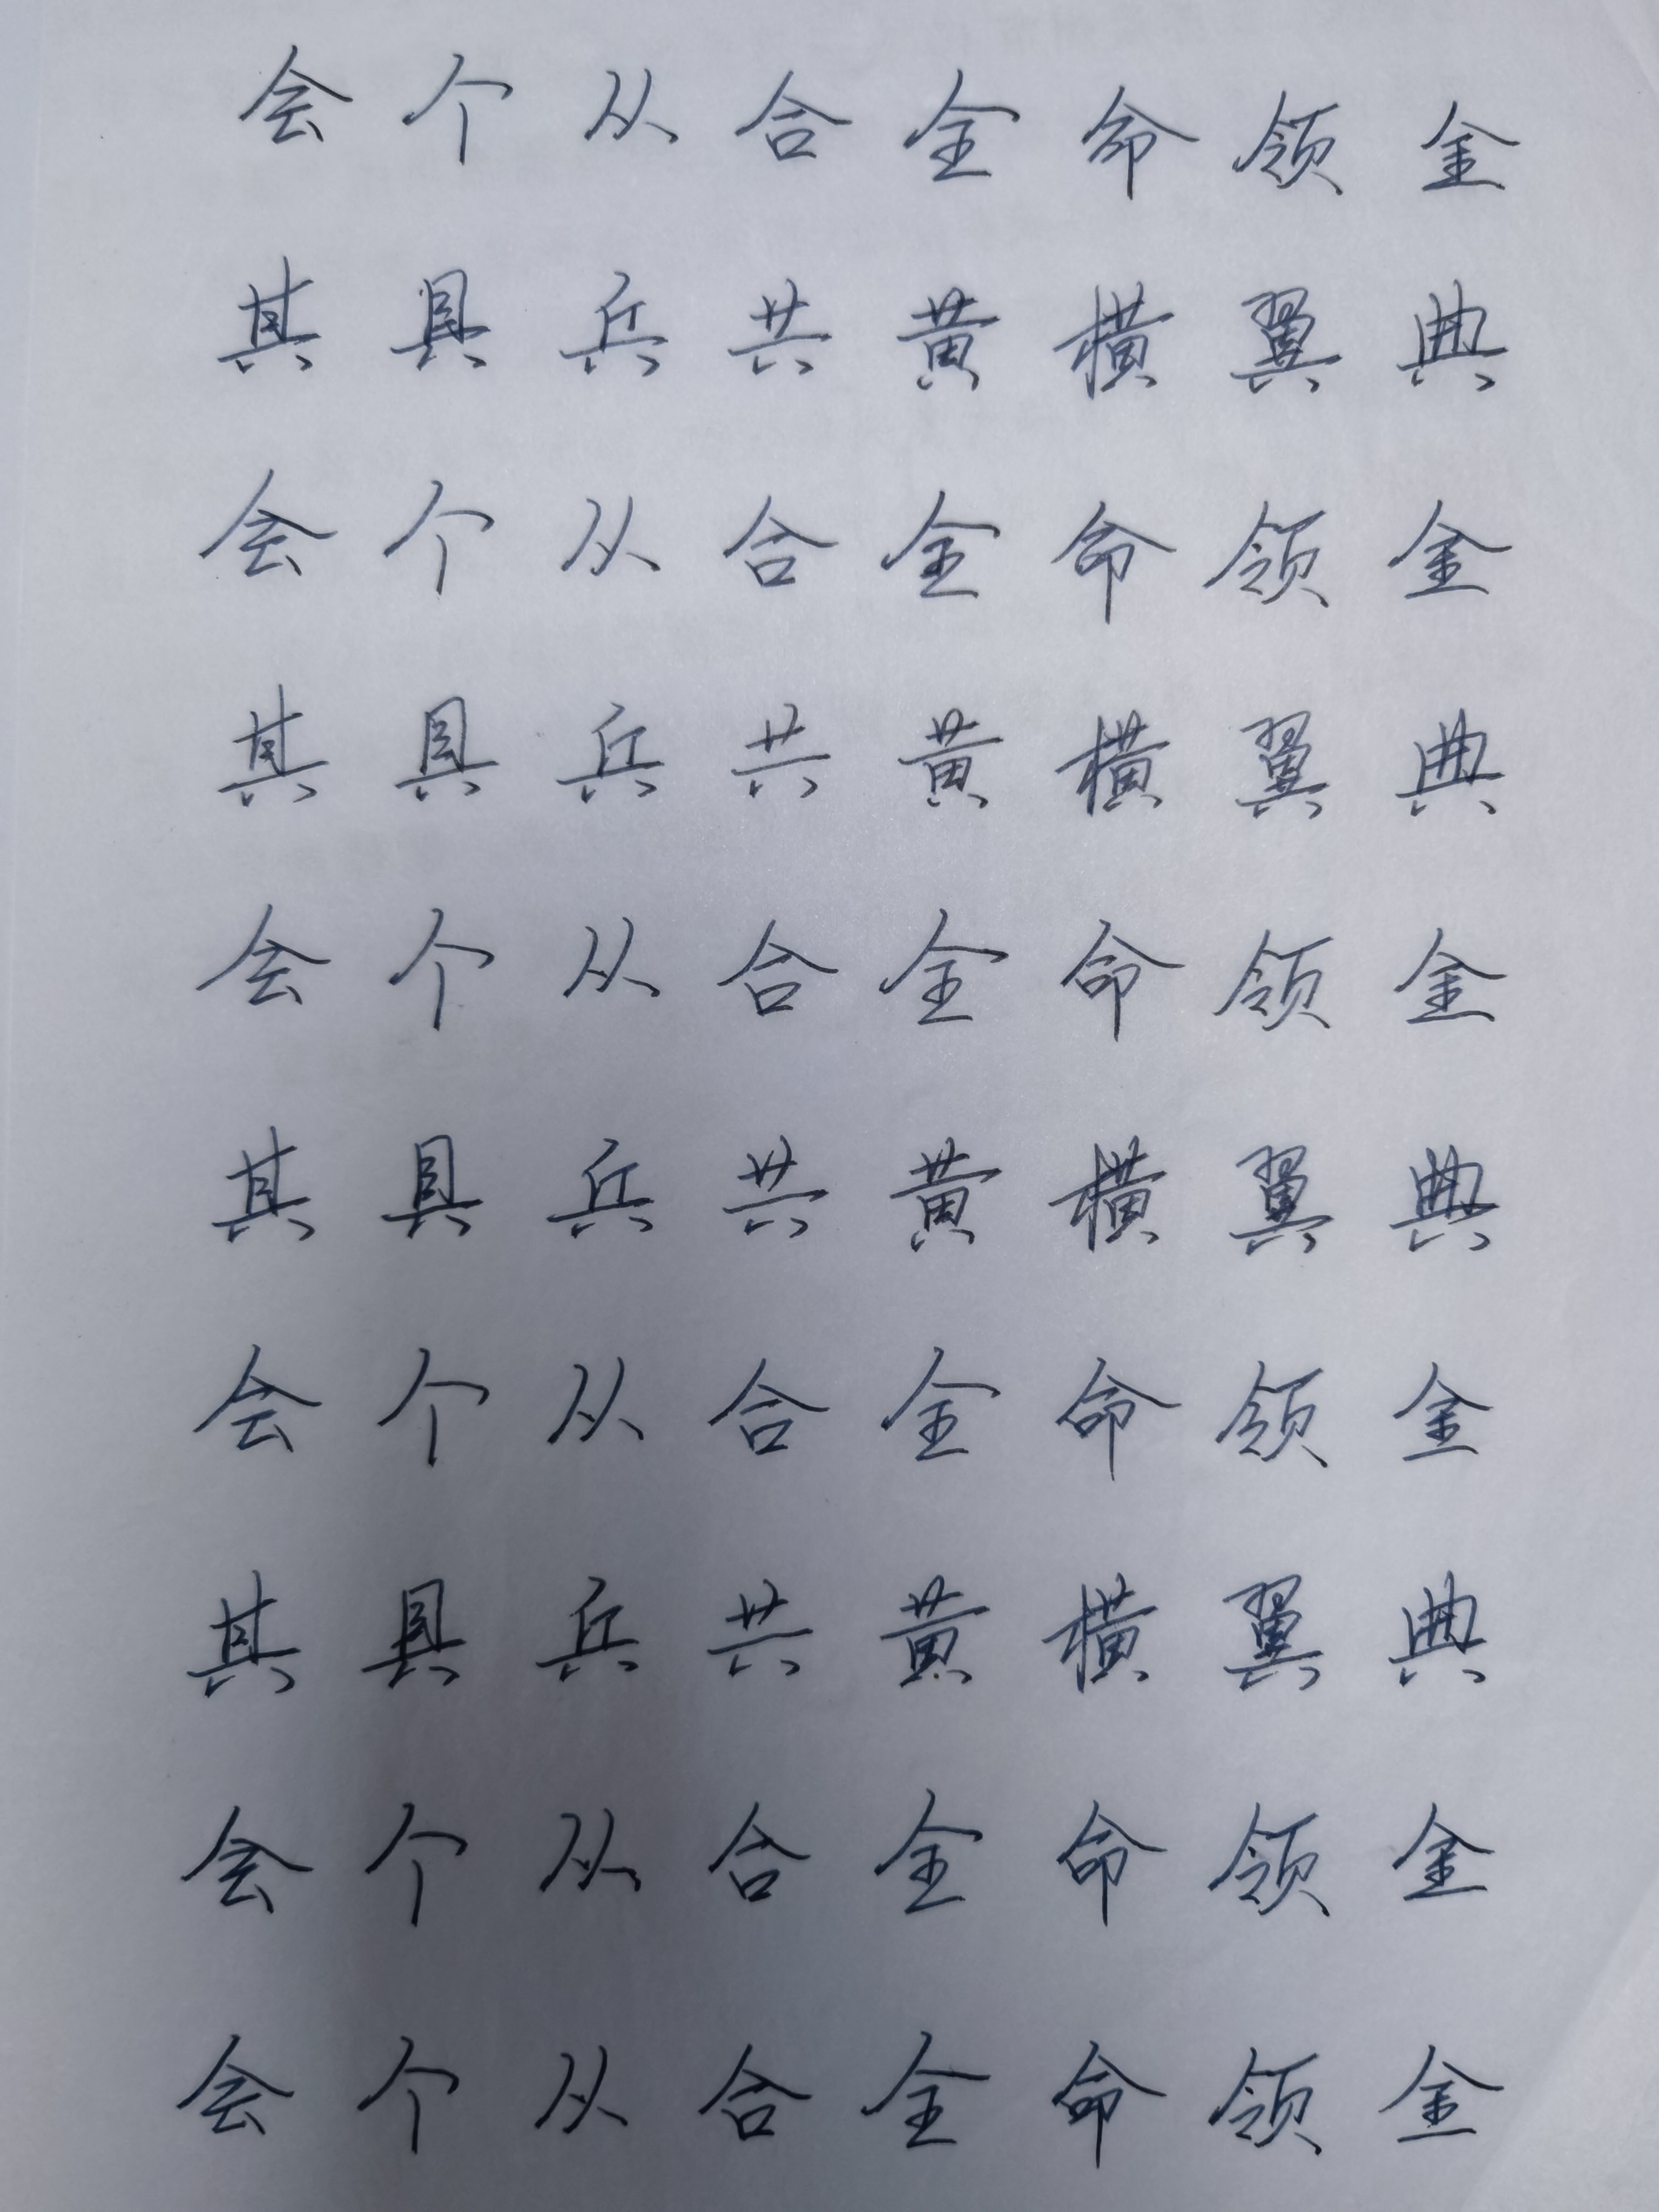 会个从合全命领金
其具兵共黄横翼典
会个从合全命领金
其具兵共黄横翼典
会个从合全命领金
其具兵共黄横翼典
会个从合全命领金
其具兵共黄横翼典
会个从合全命领金
会个从合全命领金